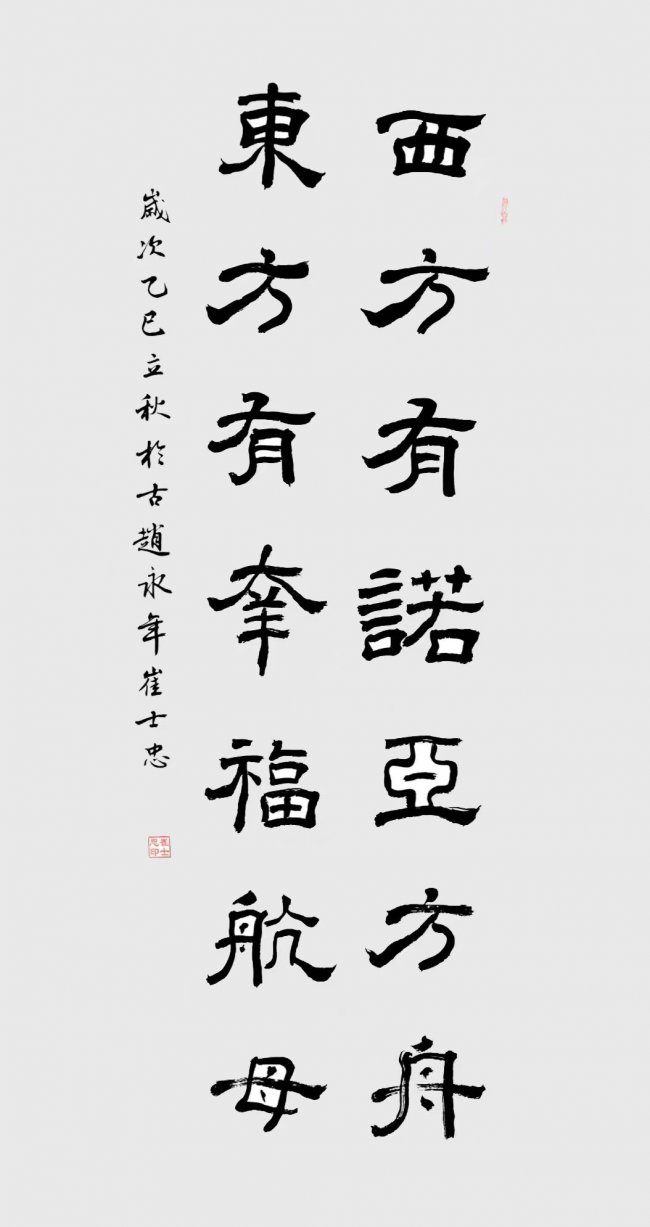 西方有諾亞方舟
東方有幸福航母
歲次乙巳立秋於古趙永年崔士忠
崔士忠印